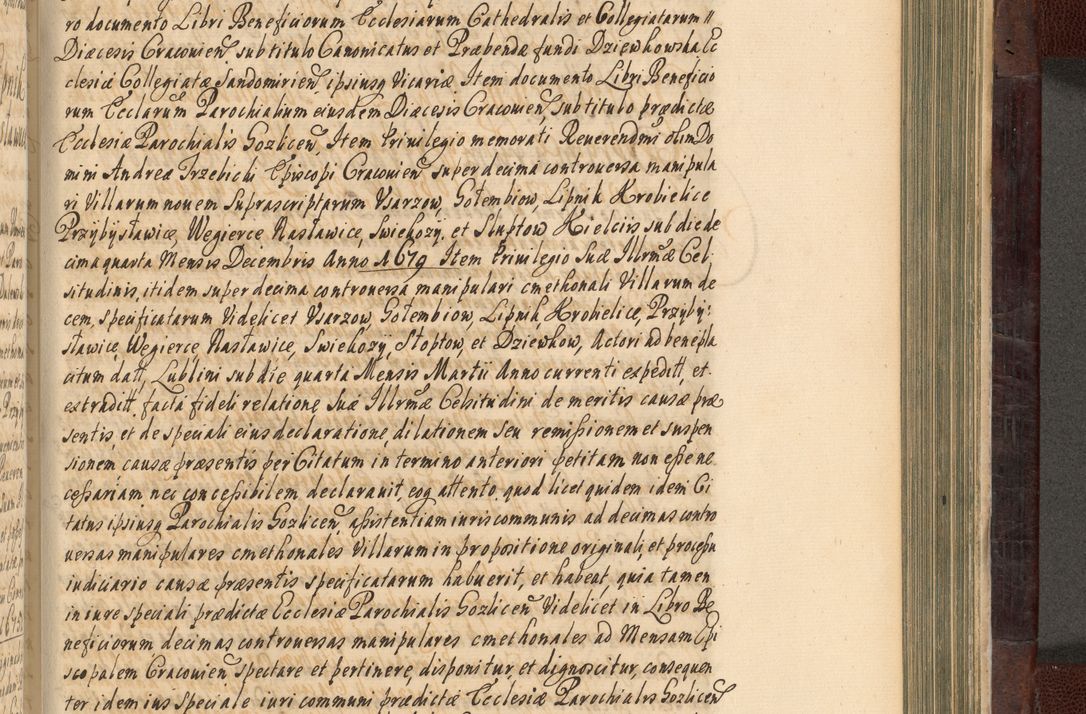 ro documento Libri Beneficiorum Ecclesiarum Cathedralis et Collegiatarum //
Diæcesis Cracouien̄ subtitulo Canonicatus et Præbendæ fundi Dziewkowska Ec
clesiæ Collegiatæ Sandomirien̄ ipsiusq Vicariæ Item documento Libri Beneficio
rum Ecclarum Parochialium eiusdem Diæcesis Cracouien̄, subtitulo prædictæ
Ecclesiæ Parochialis Gozlicen̄, Item Priuilegio memorati Reuerendmi olim Do
mini Andreæ Trzebicki Episcopi Cracouien̄ super decima controuersa manipula
ri Villarum nouem Suprascriptarum Vsarzow, Gołembiow, Lipnik Krobielice
Przybysławice, Węgierce Nasławice, Swiekozy, et Sluptow Kielciis sub die de
cima quarta Mensis Decembris Anno 1679 Item Priuilegio Suæ Illrmæ Cel:
situdinis, itidem super decima controuersa manipulari cmethonali Villarum de
cem, specificatarum Videlicet Vsarzow, Gołembiow, Lipnik, Krobielice, Przyby:
sławice, Węgierce, Nasławice, Swiekozy, Słoptow, et Dziewkow, Actori ad benepla
citum datt, Lublini sub die quarta Mensis Martii Anno currenti expeditt, et
extraditt, facta fideli relatione Suæ Illrmæ Celsitudini de meritis causæ præ
sentis, et de speciali eius declaratione, dilationem seu remissionem et suspen
sionem causæ præsentis per Citatum in termino anteriori petitam non esse ne
cessariam nec concessibilem declarauit, eoq attento, quod licet quidem idem Ci
tatus ipsiusq Parochialis Gozlicen̄ assistentiam iuris communis ad decimas contro
uersas manipulares cmethonales Villarum in propositione originali, et processu
iudiciario causæ præsentis specificatarum habuerit, et habeat, quia tamen
in iure speciali prædictæ Ecclesiæ Parochialis Gozlicen̄ Videlicet in Libro Be
neficiorum decimas controuersas manipulares cmethonales ad Mensam Epi
scopalem Cracouien̄ spectare et pertinere, disponitur, et dignoscitur, consequen
ter idem ius speciale iuri communi prædictæ Ecclesiæ Parochialis Gozlicen̄